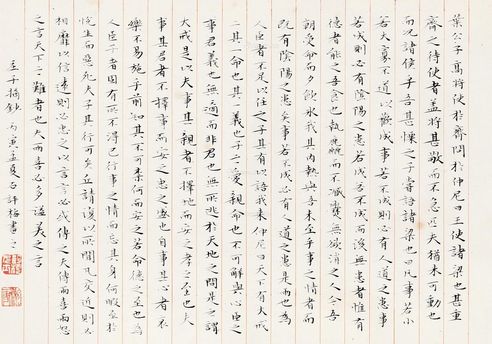 葉公子高將使於齊問於仲尼曰王使諸梁也甚重
齊之待使者蓋將甚敬而不急匹夫猶未可動也
而況諸侯乎吾甚慄之子嘗語諸梁也曰凡事若小
若大寡不道以懽成事若不成則必有人道之患事
若成則必有陰陽之患若成若不成而後無患者惟有
德者能之吾食也執粗而不臧爨無欲清之人今吾
朝受命而夕飲冰我其內熱與吾未至乎事之情而
既有陰陽之患矣事若不成必有人道之患是兩也為
人臣者不足以任之子其有以語我來仲尼曰天下有大戒
二其一命也其一義也子之愛親命也不可解於心臣之
事君義也無適而非君也無所逃於天地之間是之謂
大戒是以夫事其親者不擇地而安之孝之至也夫
事其君者不擇事而安之忠之盛也自事其心者哀
樂不易施乎前知其不可奈何而安之若命德之至也為
人臣子者固有所不得已行事之情而忘其身何暇至於
悅生而惡死夫子其行可矣丘請復以所聞凡交近則必
相靡以信遠則必忠之以言言必或傳之夫傳兩喜兩怒
之言天下之難者也夫兩喜必多溢美之言
莊子摘鈔 丙寅孟夏